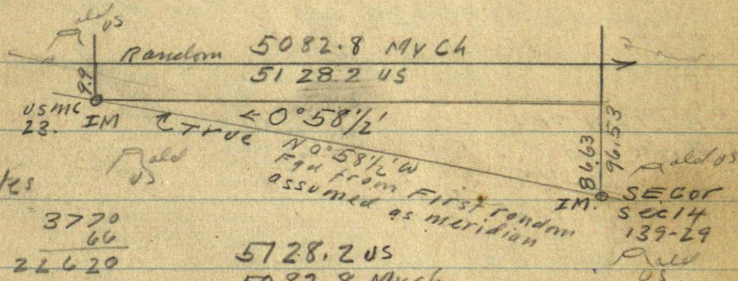 ald
us
Random 5082.8 My Ch
5128.2 US
9.9
← 0°58½'
USMC
23. IM True
N 0°58½' W
Fgd from First random
assumed as meridian
86.63
96.53
ald us
IM. SE Cor
Sec 14
139-29
ald
us
ald
us
3770
66
22620
5128.2 US
5082.8 My Ch